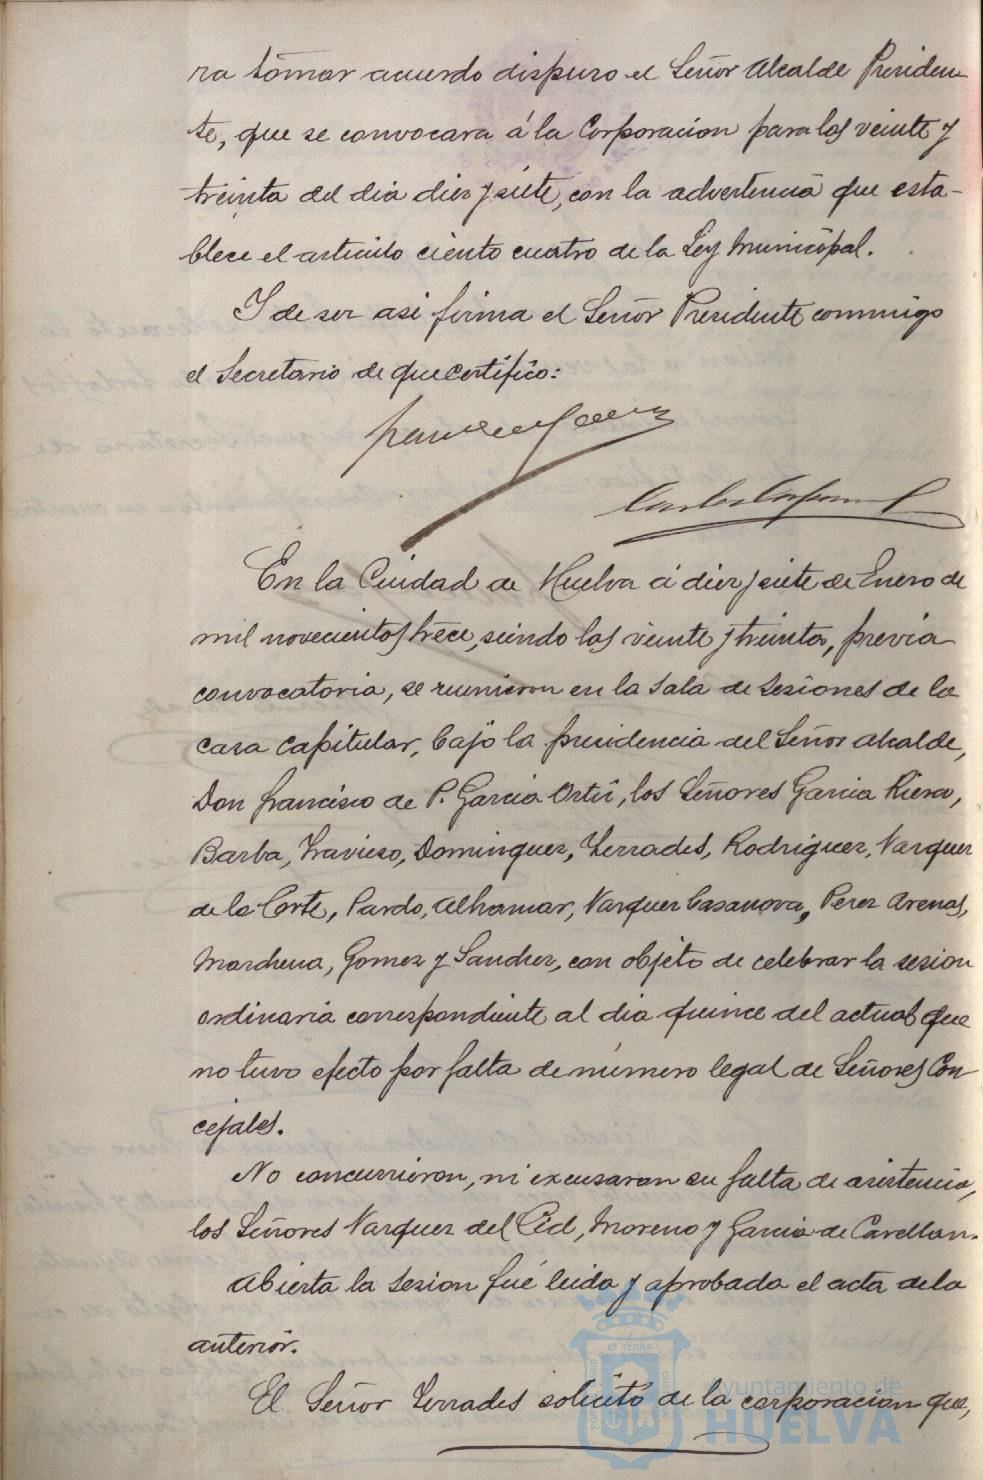 ra tomar acuerdo dispuso el Señor Alcalde Presiden-
te, que se convocara á la Corporacion para las veinte y
treinta del dia diez y siete, con la advertencia que esta-
blece el articulo ciento cuatro de la Ley Municipal.
Y de ser asi firma el Señor Presidente conmigo
el Secretario de que certifico:
En la Ciudad de Huelva á diez y siete de Enero de
mil novecientos trece, siendo las veinte y treinta, previa
convocatoria, se reunieron en la Sala de Sesiones de la
casa capitular, bajo la presidencia del Señor Alcalde,
Don Francisco de P. Garcia Ortiz, los Señores Garcia Riera,
Barba, Travieso, Dominguez, Terrades, Rodriguez, Vazquez
de la Corte, Pardo, Alhamar, Vazquez Casanova, Perez Arenas,
Marchena, Gomez y Sanchez, con objeto de celebrar la sesion
ordinaria correspondiente al dia quince del actual que
no tuvo efecto por falta de número legal de Señores Con-
cejales.
No concurrieron, ni excusaron su falta de asistencia,
los Señores Vazquez del Cid, Moreno y Garcia de Cavellan.
Abierta la Sesion fué leida y aprobada el acta de la
anterior.
El Señor Terrades solicitó de la corporacion que,
ET TERRÆ
Ayuntamiento de
HUELVA